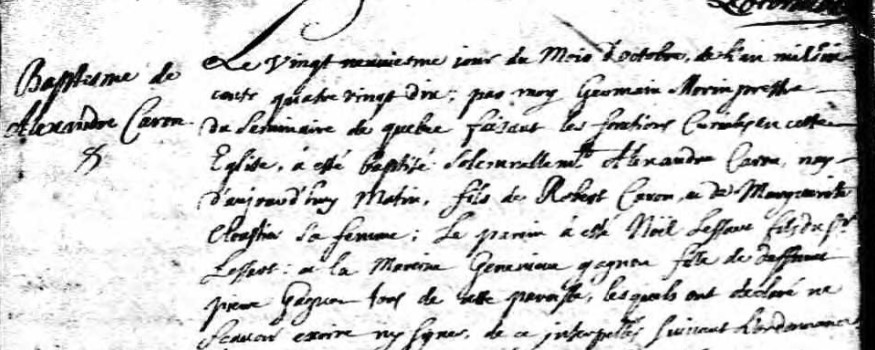 Baptesme de
Alexandre Caron
Le vingt neuviesme jour du Mois d'octobre, de l'an mil six
cents quatre vingt dix; par moy Germain Morin prestre
du Seminaire de quebec faisant les fonctions Curiales en cette
Eglise, à esté baptisé solemnellemt Alexandre Caron, nay
d'aujourd'huy Matin, fils de Robert Caron, et de Marguerite
Cloustier sa femme; Le parein à esté Noël Lessart fils du Sr
Lessart: et la Mareine Genevieve gagnon fille de deffunct
pierre Gagnon tous de cette paroisse, lesquels ont declaré ne
scavoir escrire ny signer, de ce interpellés suivant l'ordonnance